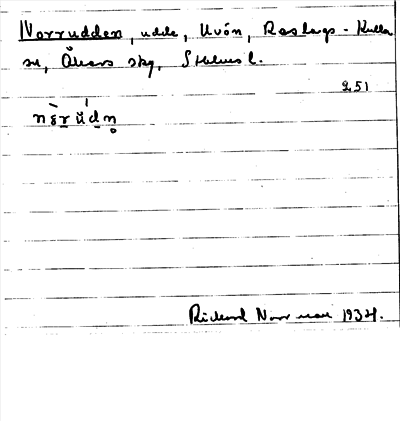 Norrudden, udde, Uvön, Roslags-Kulla
sn, Åkers skg, Sthlms l.
251
nȯ̀rụ́dṇ
Rickard Norrman 1934.